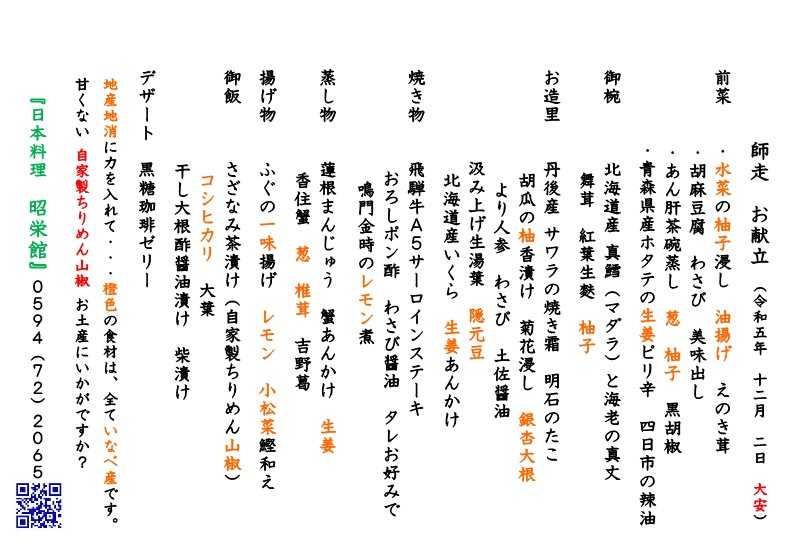 師走　お献立　（令和五年　十二月　二日　大安）
前菜　・水菜の柚子浸し　油揚げ　えのき茸
・胡麻豆腐　わさび　美味出し
・あん肝茶碗蒸し　葱　柚子　黒胡椒
・青森県産ホタテの生姜ピリ辛　四日市の辣油
御椀　北海道産　真鱈（マダラ）と海老の真丈
舞茸　紅葉生麩　柚子
お造里　丹後産　サワラの焼き霜　明石のたこ
胡瓜の柚香漬け　菊花浸し　銀杏大根
より人参　わさび　土佐醤油
汲み上げ生湯葉　隠元豆
北海道産いくら　生姜あんかけ
焼き物　飛騨牛Ａ５サーロインステーキ
おろしポン酢　わさび醤油　タレお好みで
鳴門金時のレモン煮
蒸し物　蓮根まんじゅう　蟹あんかけ　生姜
香住蟹　葱　椎茸　吉野葛
揚げ物　ふぐの一味揚げ　レモン　小松菜鰹和え
御飯　さざなみ茶漬け（自家製ちりめん山椒）
コシヒカリ　大葉
干し大根酢醤油漬け　柴漬け
デザート　黒糖珈琲ゼリー
地産地消に力を入れて・・・橙色の食材は、全ていなべ産です。
甘くない　自家製ちりめん山椒　お土産にいかがですか？
『日本料理　昭栄館』０５９４（７２）２０６５